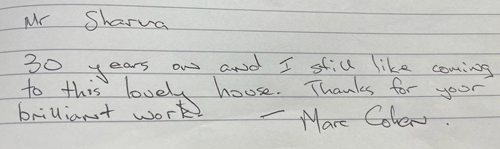 Mr Sharma
30 years on and I still like coming
to this lovely house. Thanks for your
brilliant work. – Marc Cohen.